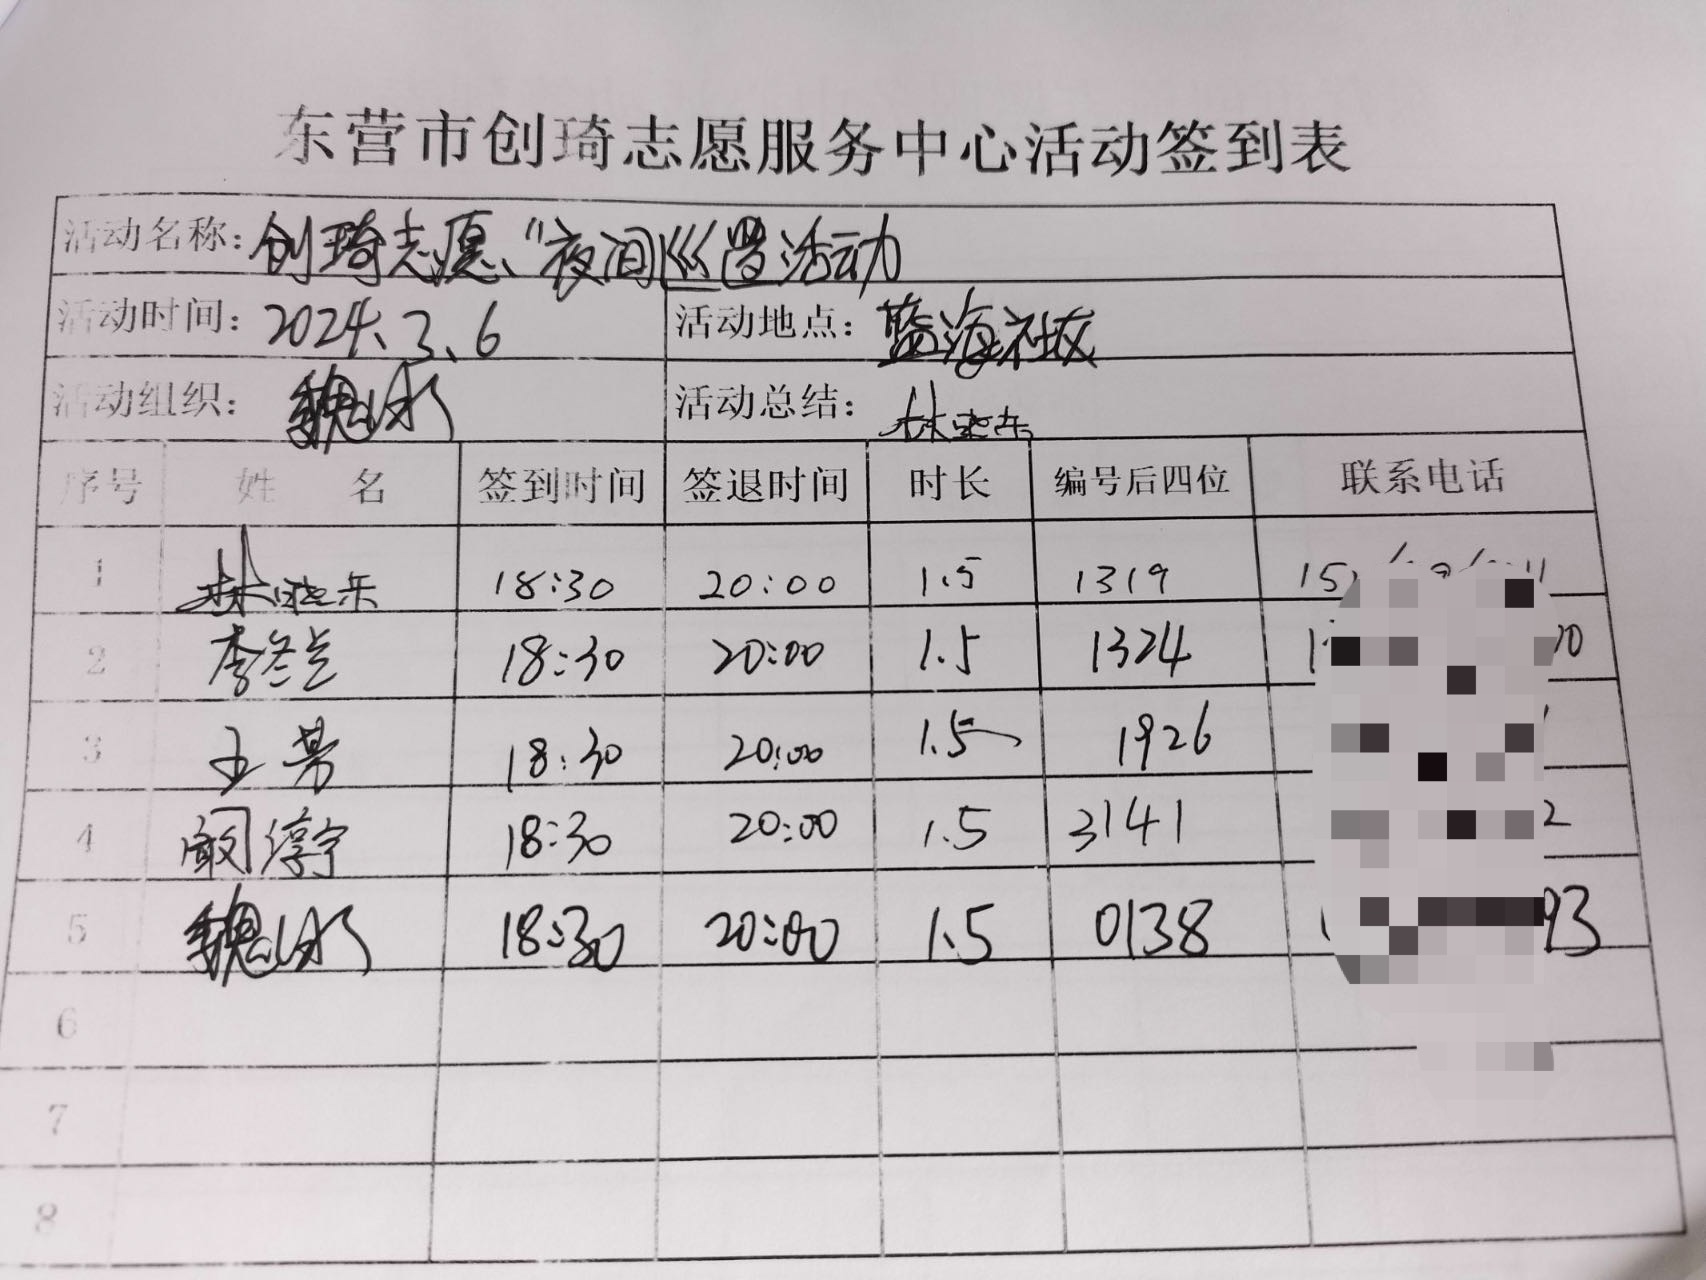 东营市创琦志愿服务中心活动签到表
活动名称：创琦志愿、"夜间巡逻活动
活动时间：2024.3.6 活动地点：蓝海社区
活动组织：魏冰 活动总结：林晓东
序号 姓 名 签到时间 签退时间 时长 编号后四位 联系电话
1 林晓东 18:30 20:00 1.5 1319 15
2 李冬兰 18:30 20:00 1.5 1324
3 王芳 18:30 20:00 1.5 1926
4 阚淳宇 18:30 20:00 1.5 3141 2
5 魏冰 18:30 20:00 1.5 0138 93
6
7
8